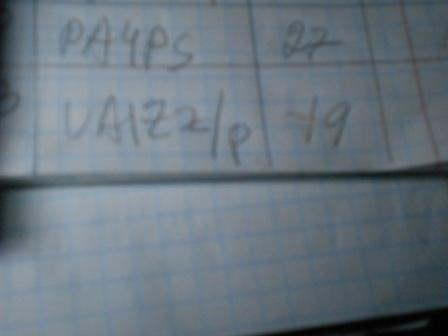 PA4PS 27
UA1ZZ/p 19